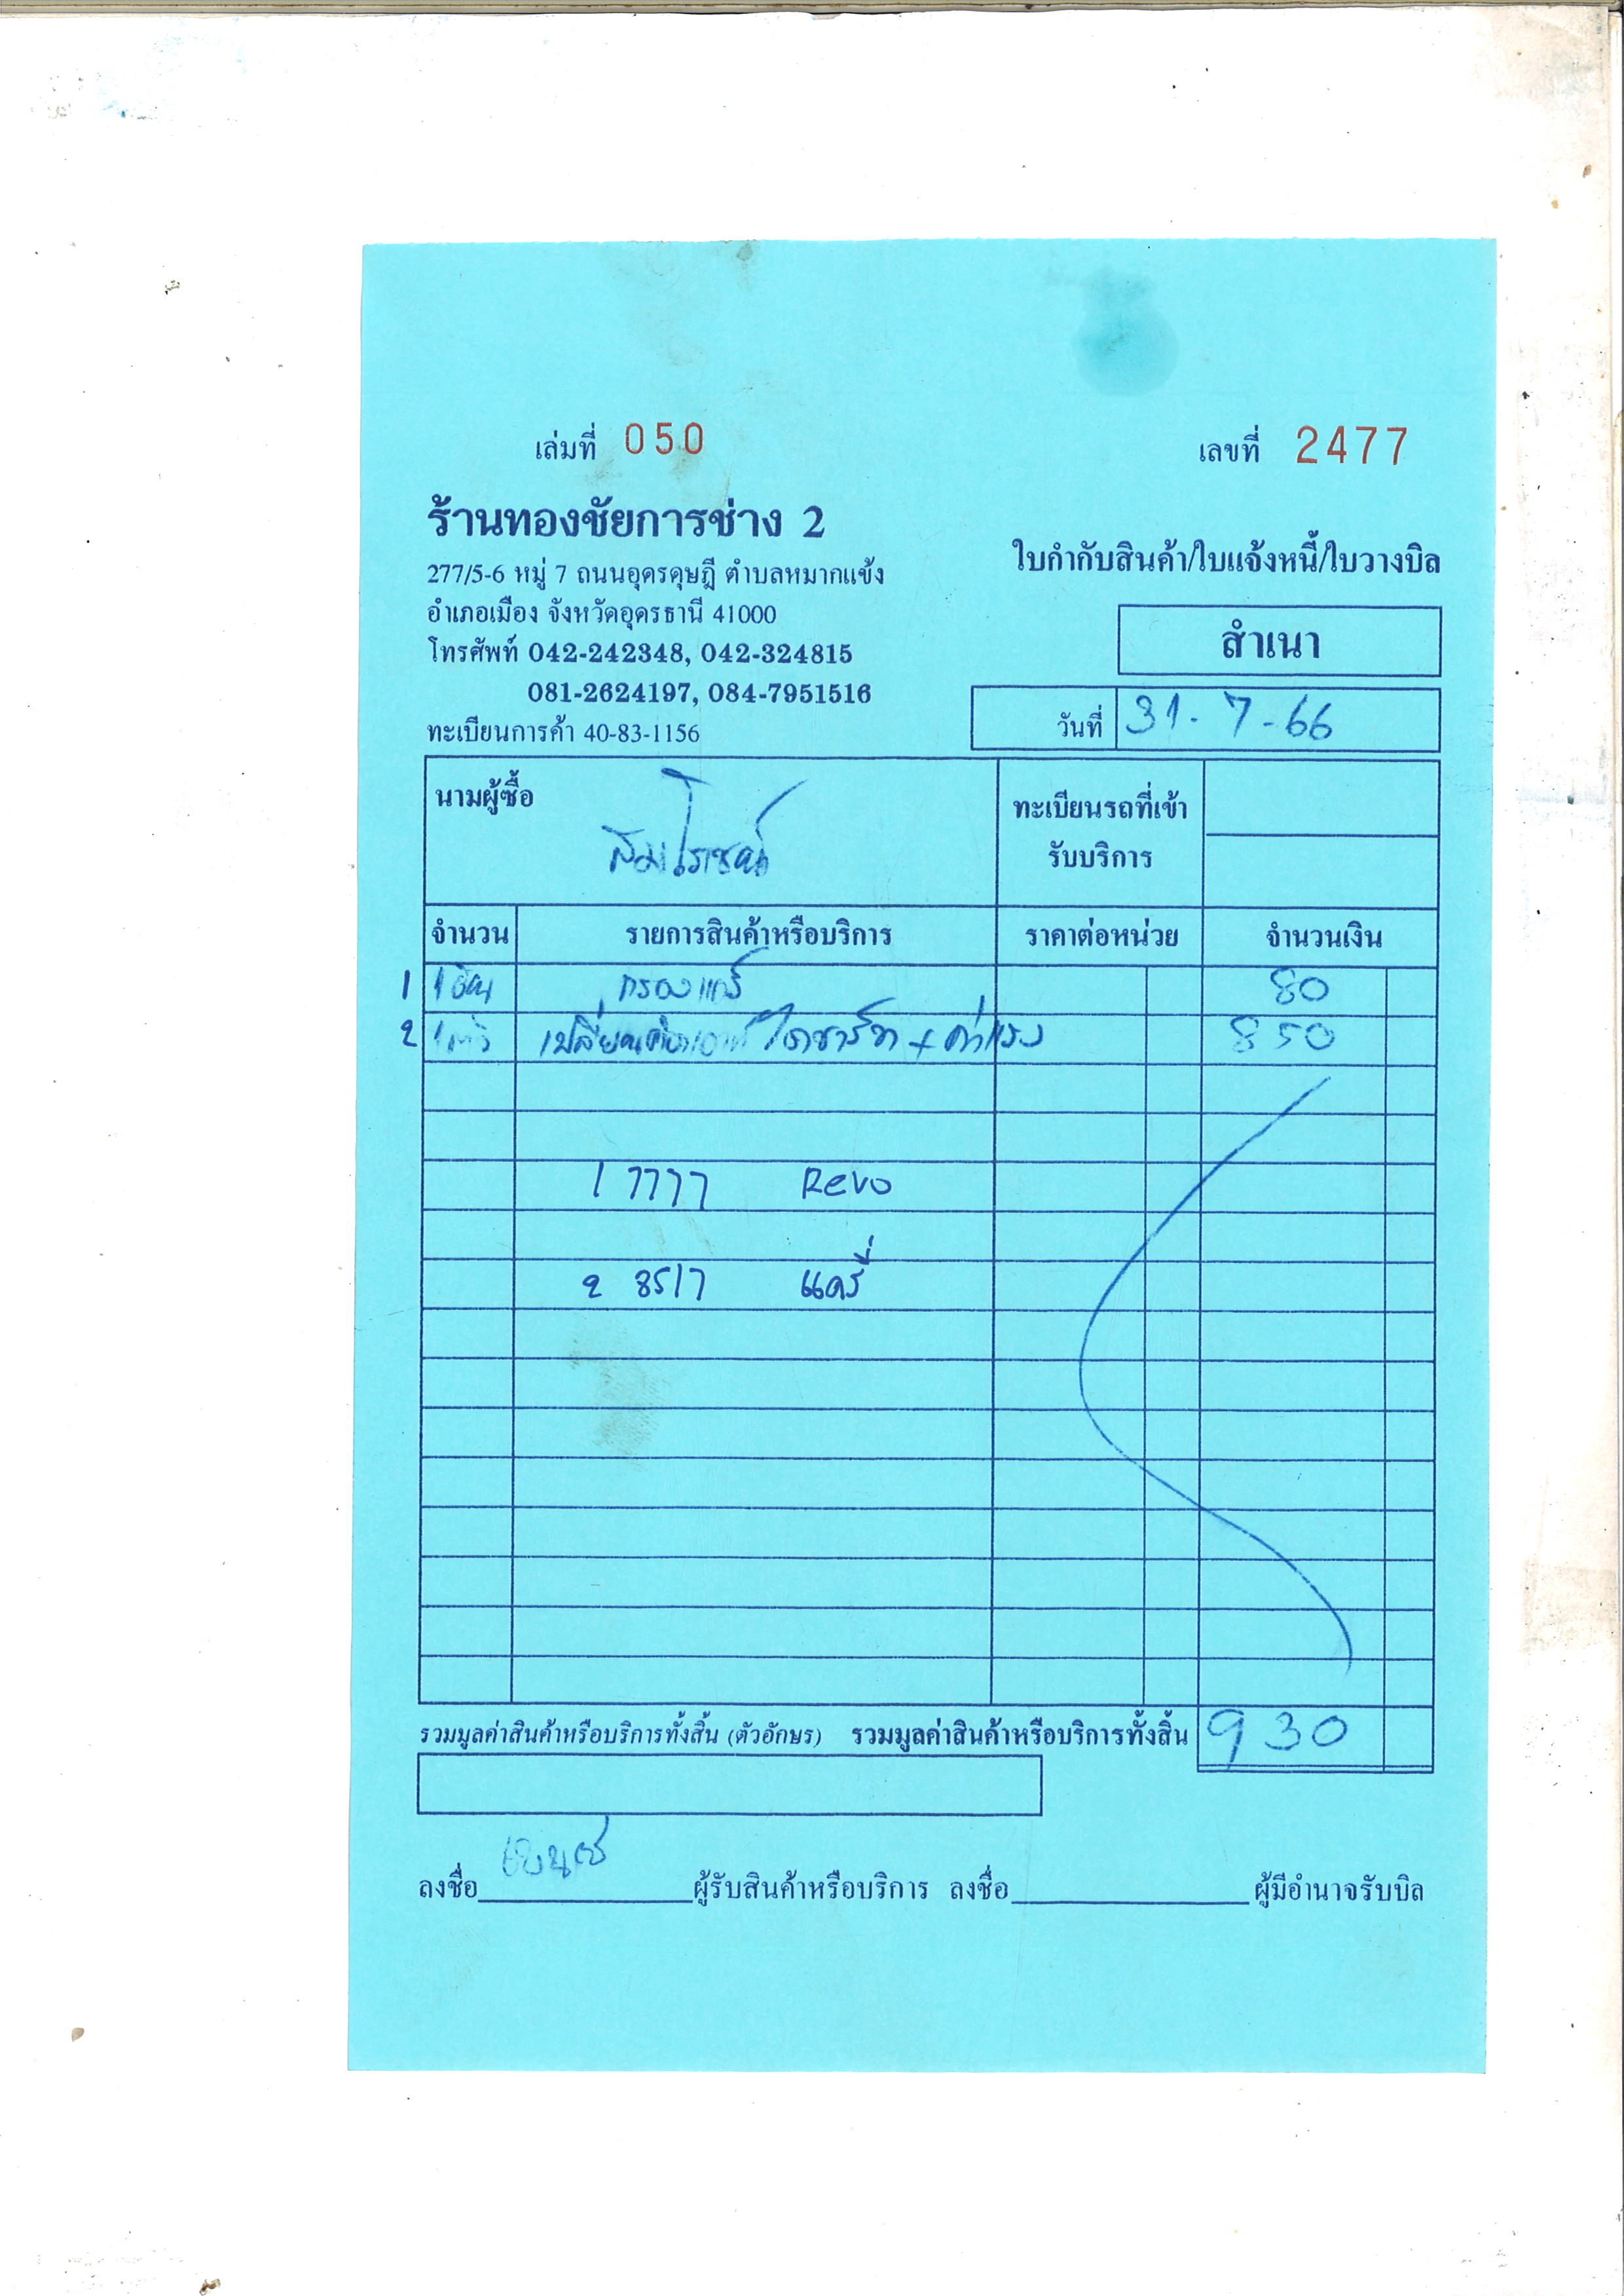 เล่มที่ 050
เลขที่ 2477
ร้านทองชัยการช่าง 2
277/5-6 หมู่ 7 ถนนอุดรดุษฎี ตำบลหมากแข้ง
อำเภอเมือง จังหวัดอุดรธานี 41000
โทรศัพท์ 042-242348, 042-324815
081-2624197, 084-7951516
ทะเบียนการค้า 40-83-1156
ใบกำกับสินค้า/ใบแจ้งหนี้/ใบวางบิล
สำเนา
วันที่ 31-7-66
นามผู้ซื้อ
ทะเบียนรถที่เข้า
รับบริการ
จำนวน รายการสินค้าหรือบริการ ราคาต่อหน่วย จำนวนเงิน
1 1 กรองแอร์ 80
2 1 เปลี่ยน ไดชาร์ท + ค่าแรง 850
1 7777 Revo
2 8517 แครี่
รวมมูลค่าสินค้าหรือบริการทั้งสิ้น (ตัวอักษร) รวมมูลค่าสินค้าหรือบริการทั้งสิ้น 930
ลงชื่อ ผู้รับสินค้าหรือบริการ ลงชื่อ ผู้มีอำนาจรับบิล